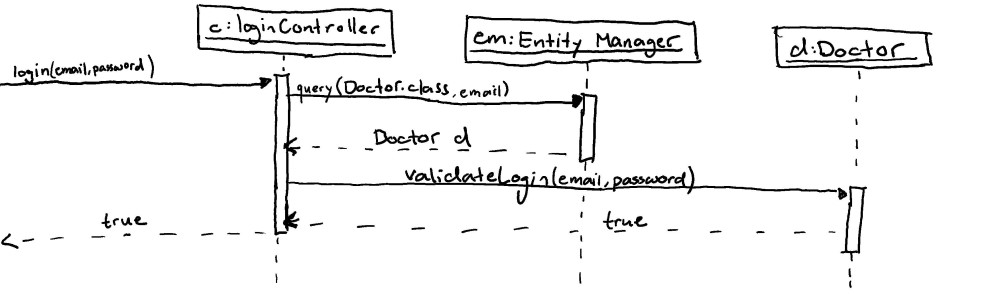 c:loginController
em:Entity Manager
d:Doctor
login(email,password)
query(Doctor.class,email)
Doctor d
validateLogin(email,password)
true
true